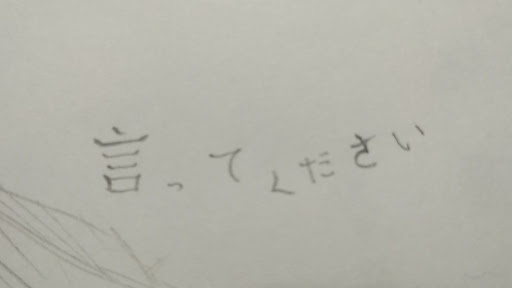 言ってください